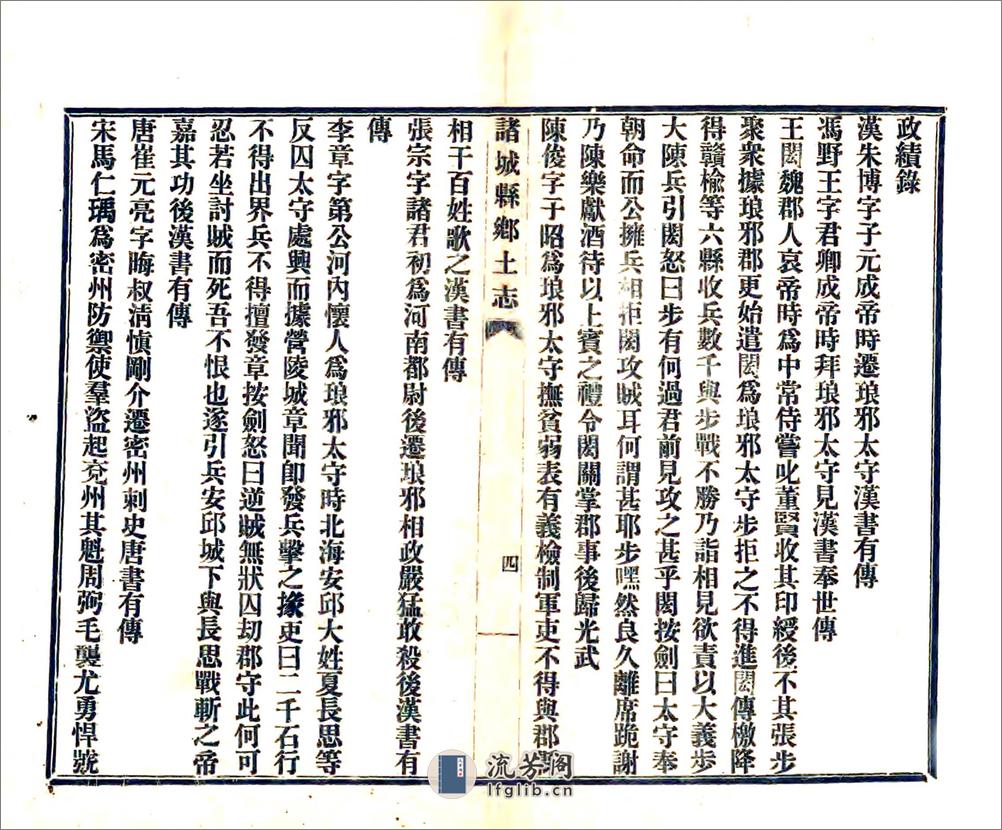 政績錄
漢朱博字子元成帝時遷琅邪太守漢書有傳
馮野王字君卿成帝時拜琅邪太守見漢書奉世傳
王閎魏郡人哀帝時為中常侍嘗叱董賢收其印綬後不其張步
聚衆據琅邪郡更始遣閎為琅邪太守步拒之不得進閎傳檄降
得贛榆等六縣收兵數千與步戰不勝乃詣相見欲責以大義步
大陳兵引閎怒曰步有何過君前見攻之甚乎閎按劍曰太守奉
朝命而公擁兵相拒閎攻賊耳何謂甚耶步嘿然良久離席跪謝
乃陳樂獻酒待以上賓之禮令閎關掌郡事後歸光武
陳俊字子昭為琅邪太守撫貧弱表有義檢制軍吏不得與郡縣
諸城縣鄉土志
四
相干百姓歌之漢書有傳
張宗字諸君初為河南都尉後遷琅邪相政嚴猛敢殺後漢書有
傳
李章字第公河內懷人為琅邪太守時北海安邱大姓夏長思等
反囚太守處興而據營陵城章聞卽發兵擊之掾吏曰二千石行
不得出界兵不得擅發章按劍怒曰逆賊無狀囚劫郡守此何可
忍若坐討賊而死吾不恨也遂引兵安邱城下與長思戰斬之帝
嘉其功後漢書有傳
唐崔元亮字晦叔淸愼剛介遷密州刺史唐書有傳
宋馬仁瑀為密州防禦使羣盜起兗州其魁周弼毛襲尤勇悍號
流芳阁
lfglib.cn